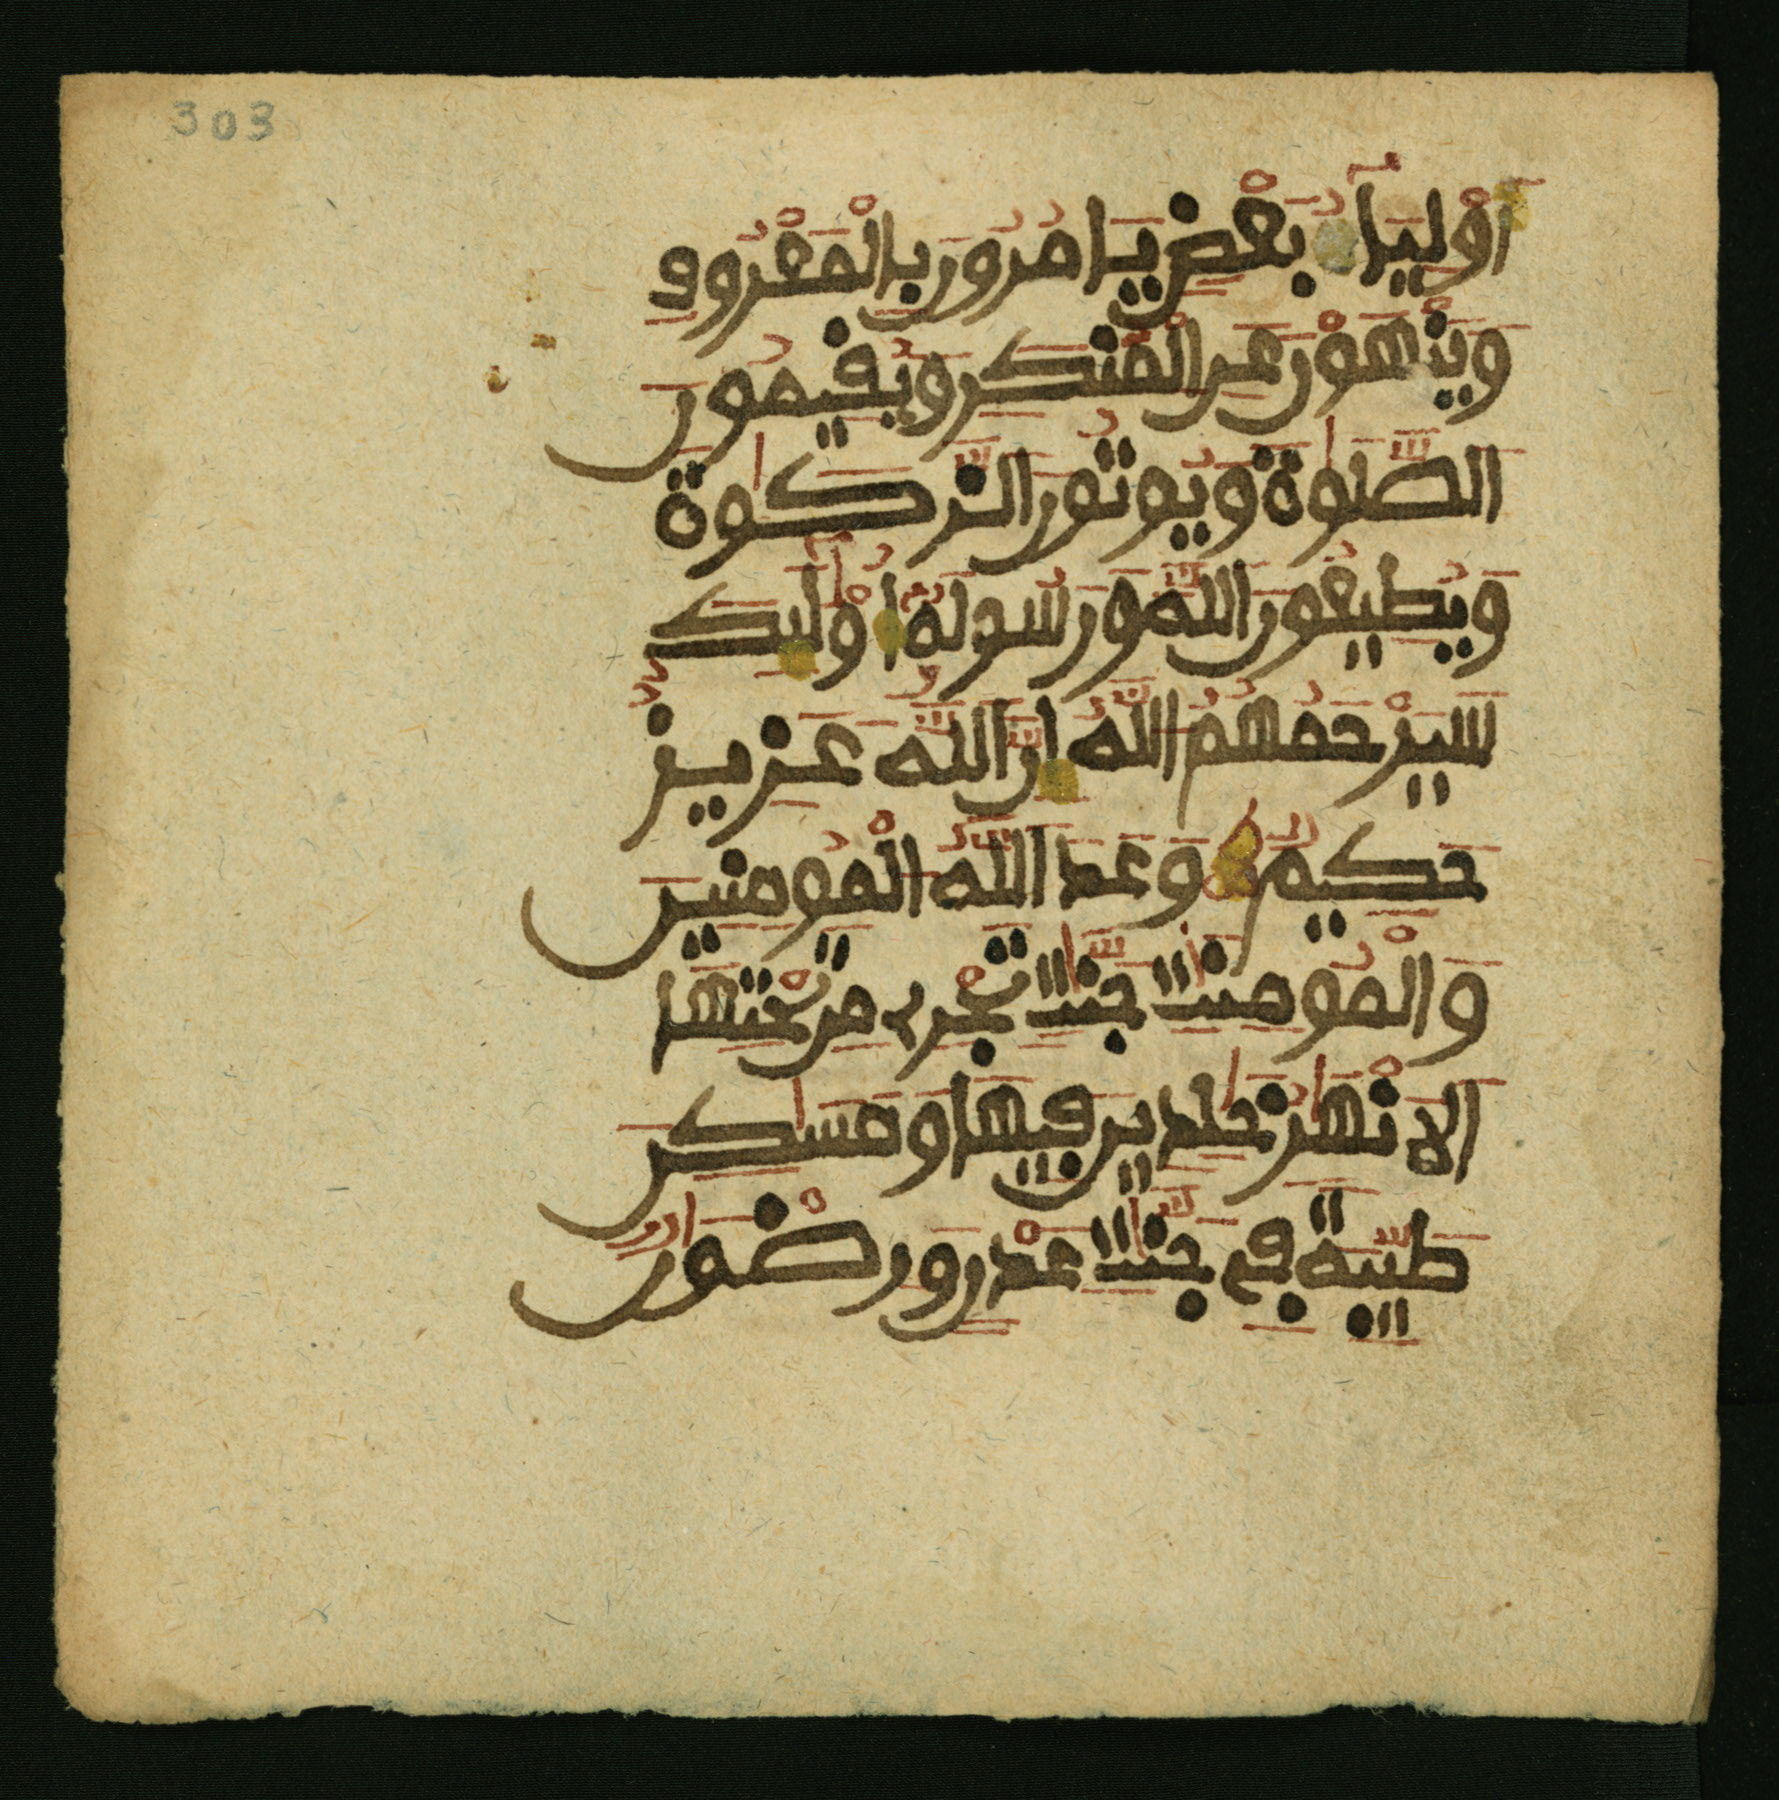 303
أَوْلِيَآءُ بَعْضٍ يَامُرُونَ بِالْمَعْرُوفِ
وَيَنْهَوْنَ عَنِ الْمُنكَرِ وَيُقِيمُونَ
الصَّلَوٰةَ وَيُوتُونَ الزَّكَوٰةَ
وَيُطِيعُونَ اللَّهَ وَرَسُولَهُۥ أُوْلَٰٓئِكَ
سَيَرْحَمُهُمُ اللَّهُ إِنَّ اللَّهَ عَزِيزٌ
حَكِيمٌ وَعَدَ اللَّهُ الْمُومِنِينَ
وَالْمُومِنَٰتِ جَنَّٰتٍ تَجْرِے مِن تَحْتِهَا
الَانْهَٰرُ خَٰلِدِينَ فِيهَا وَمَسَٰكِنَ
طَيِّبَةً فِے جَنَّٰتِ عَدْنٍ وَرِضْوَٰنٌ